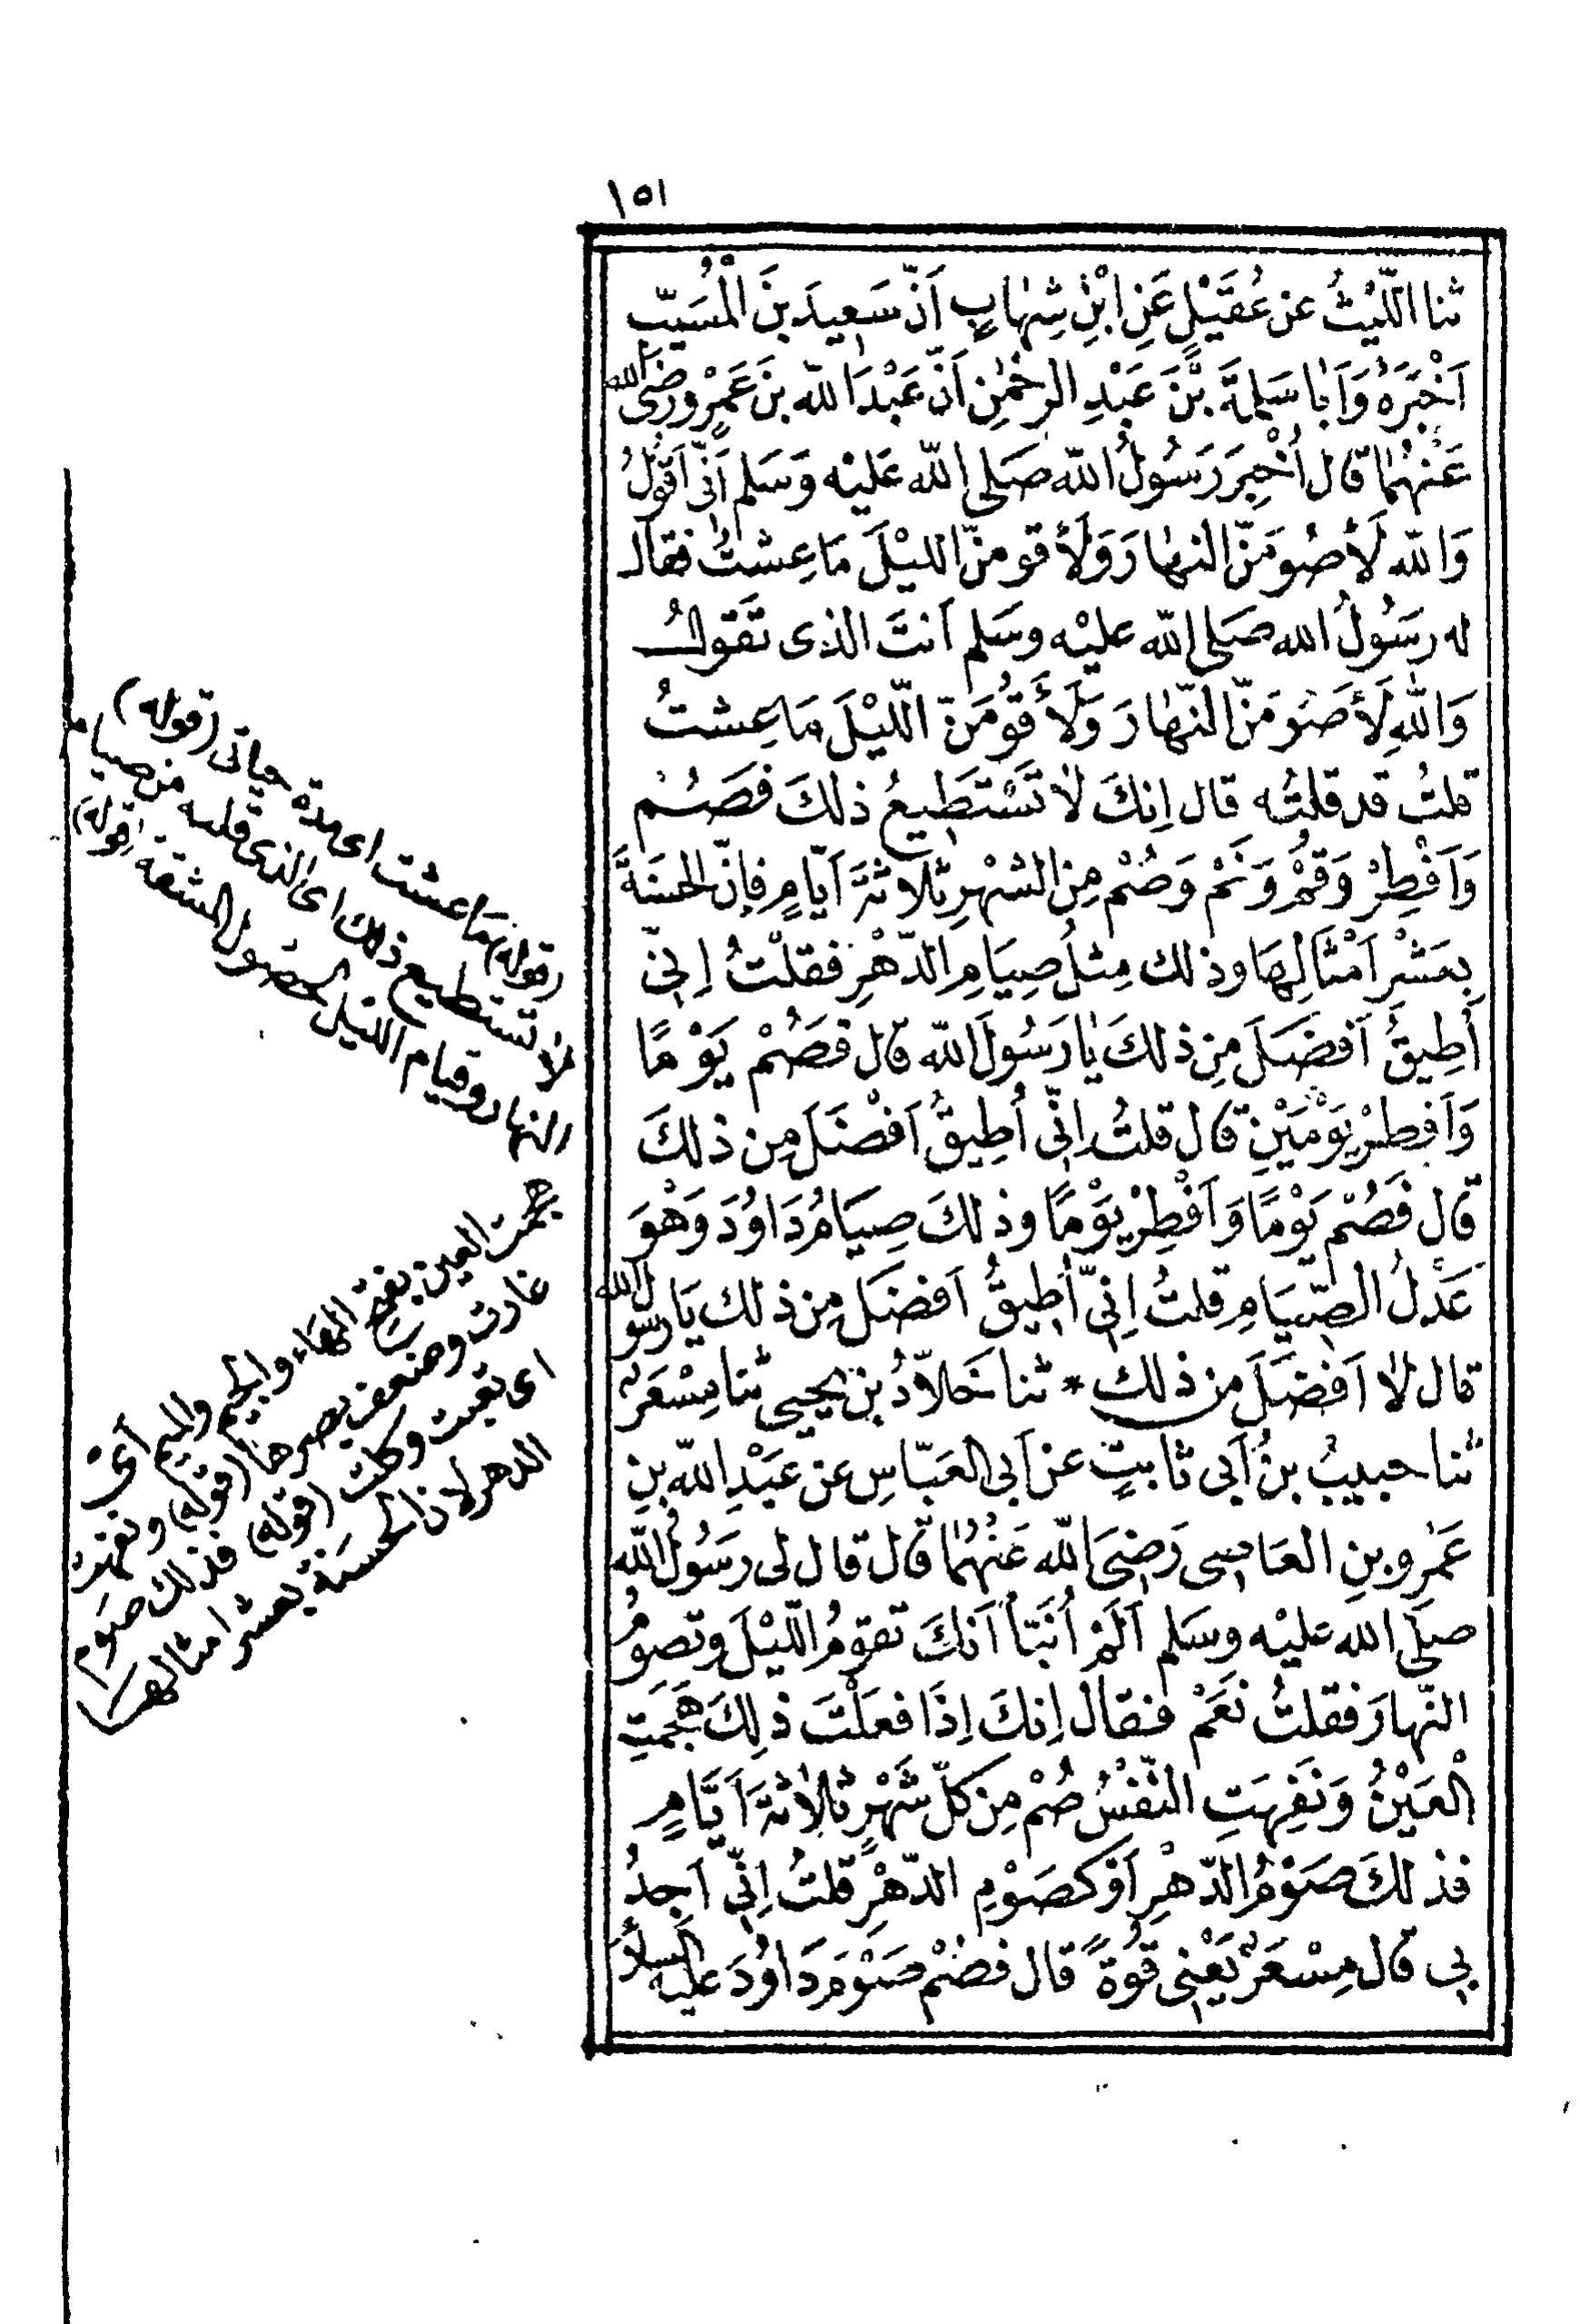 ١٥١
ثنا اللَّيْثُ عن عُقَيْلٍ عَنِ ابْنِ شِهَابٍ اَنَّ سَعِيدَ بنَ الْمُسَيّبِ
اَخْبَرَهُ وَاَبَا سَلمةَ بْنَ عَبْدِ الرحْمٰنِ اَنَّ عَبْدَ اللّه بنَ عَمْرٍو رضىَ الله
عَنْهُمَا قال اُخْبِرَ رَسُولُ اللّه صَلى اللّه عَليْه وَسَلم اَنِّى اَقُولُ
وَاللّه لَأَصُومَنَّ النهارَ وَلَأَقومنّ الليْلَ مَا عِشتُ فقال
له رسَُولُ الله صَلى اللّه عليْه وسَلم اَنتَ الذى تَقولُ
وَاللّٰهِ لَأَصَومَنَّ النّهارَ وَلَأَقُومَنّ اللّيْلَ مَا عِشتُ
قلتُ قد قلتُه قال اِنكَ لاٰ تَسْتَطِيعُ ذلكَ فَصُم
وَاَفْطِرْ وَقُمْ وَنَمْ وَصُمْ مِنَ الشهْرِ ثلاَثةَ اَيّامٍ فإنّ الحسَنةَ
بِعَشْرِ اَمْثَالِهَا وذلك مِثلُ صِيَامِ الدّهْرِ فقلْتُ اِنِّى
أُطِيقُ اَفضَلَ مِن ذلكَ يٰا رَسُولَ اللّه قال فَصُمْ يَوْمًا
وَاَفطِرْ يَوْمَيْنِ قال قلتُ اِنِّى أُطِيقُ اَفضَلَ مِن ذلكَ
قال فَصُمْ يَوْمًا وَاَفْطِرْ يوْمًا وذلكَ صِيَامُ دَاوُدَ وَهْوَ
عَدْلُ الصّيَامِ قلتُ اِنِّى أُطيقُ اَفضَلَ مِن ذلك يَا رسولَ الله
قال لاٰ اَفضَلَ من ذلك * ثنا خَلاّدُ بن يحيى ثنا مِسْعَرٌ
ثنا حبيبُ بنُ اَبى ثابتٍ عن اَبى العَبّاسِ عن عَبْدِ اللّه بنِ
عَمْرِو بنِ العَاصِى رَضِىَ اللّه عَنْهُمَا قال قال لى رسُولُ اللّه
صلَى الله عليْه وسَلم اَلَمْ اُنَبّأ اَنكَ تقومُ اللّيْلَ وتصومُ
النّهارَ فقلتُ نَعَمْ فقال اِنكَ اِذَا فعَلْتَ ذلِكَ هَجَمَتِ
الْعَيْنُ وَنَفِهَتِ النّفْسُ صُمْ مِن كلّ شَهْرٍ ثلاٰثةَ اَيّامٍ
فذلكَ صَوْمُ الدّهْرِ اَوْ كَصَوْمِ الدّهْرِ قلتُ اِنِّى اَجِدُ
بِى قال مِسْعَرٌ يَعْنِى قُوّةً قال فصُمْ صَوْمَ دَاوُدَ عليه السلام
(قوله) ما عشت اى مدة حياتى (قوله)
لا تستطيع ذلك اى الذى قلته من صيام
النهار وقيام الليل لحصول المشقة (قوله)
هجمت العين بفتح الهاء والجيم والميم أى
غارت وضعف بصرها (قوله) ونفهت
اى تعبت وكلت (قوله) فذلك صوم
الدهر لان الحسنة بعشر امثالها